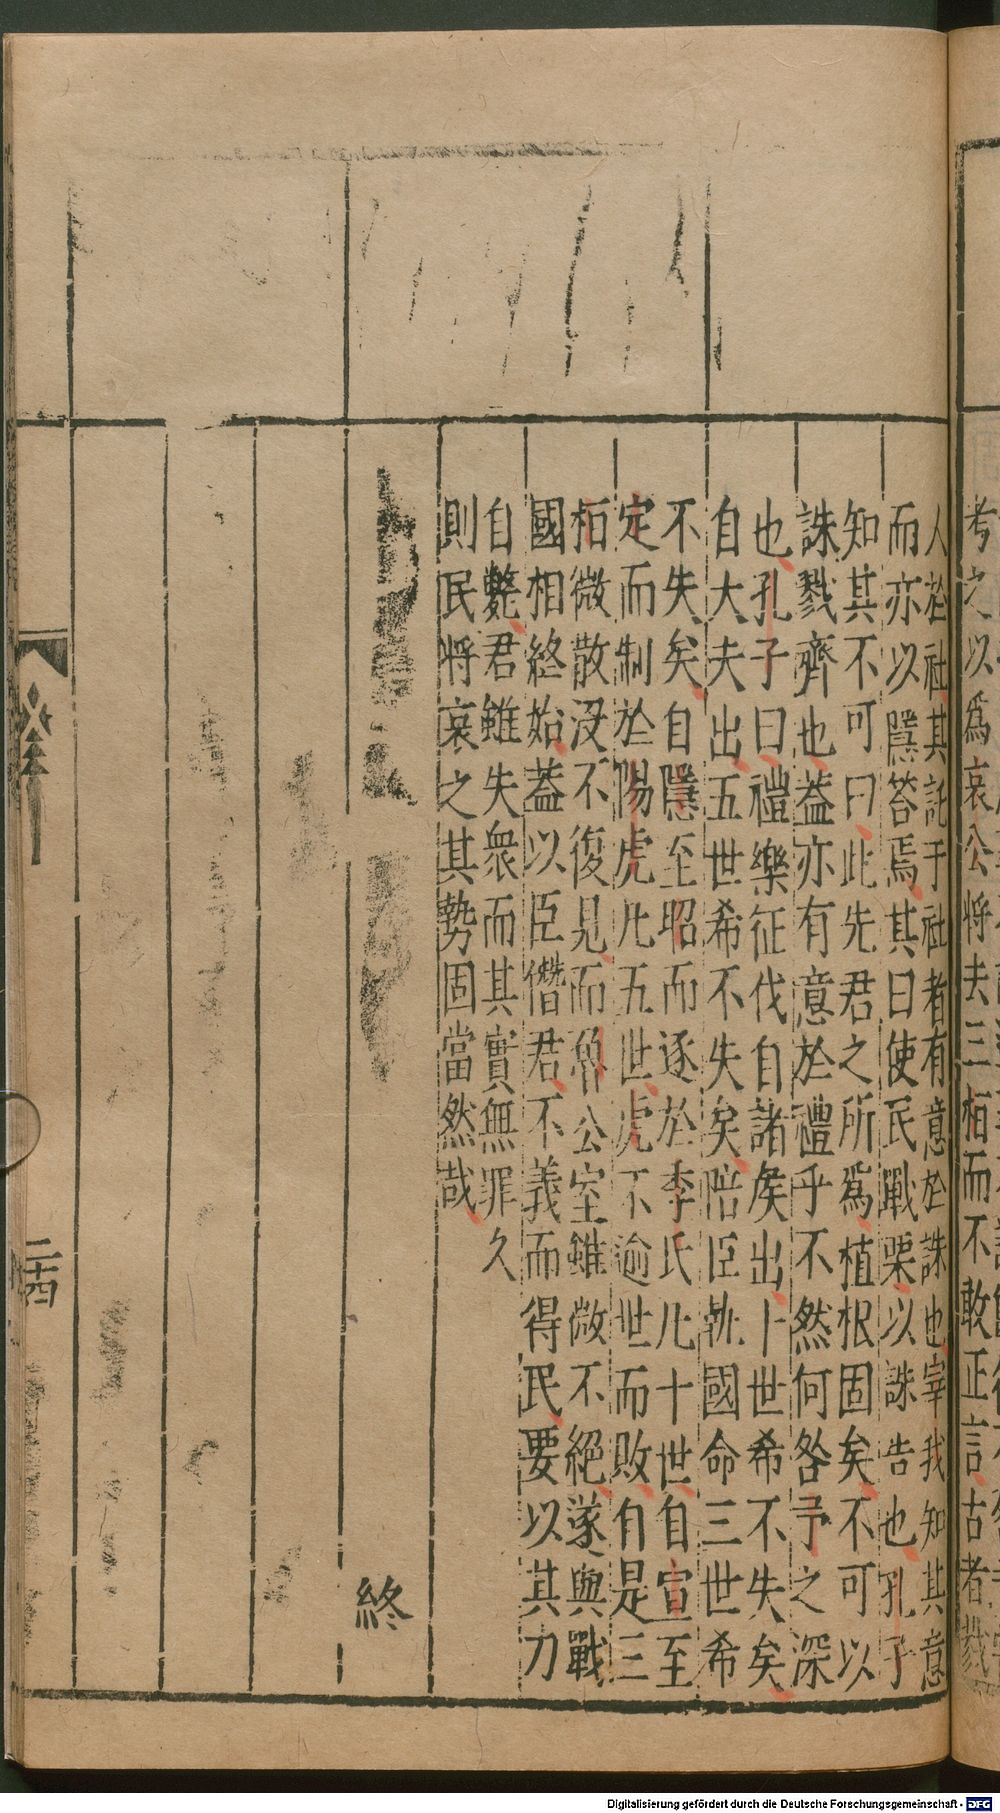 考之以為哀公將去三桓而不敢正言古者戮
人於社其託于社者有意於誅也宰我知其意
而亦以隱答焉其曰使民戰栗以誅告也孔子
知其不可曰此先君之所為植根固矣不可以
誅戮齊也蓋亦有意於禮乎不然何咎予之深
也孔子曰禮樂征伐自諸矦出十世希不失矣
自大夫出五世希不失矣陪臣執國命三世希
不失矣自隱至昭而逐於季氏凡十世自宣至
定而制於陽虎凡五世虎不逾世而敗自是三
桓微散沒不復見而魯公室雖微不絕遂與戰
國相終始蓋以臣僭君不義而得民要以其力
自斃君雖失衆而其實無罪久
則民將哀之其勢固當然哉
終
二十四
Digitalisierung gefördert durch die Deutsche Forschungsgemeinschaft - DFG